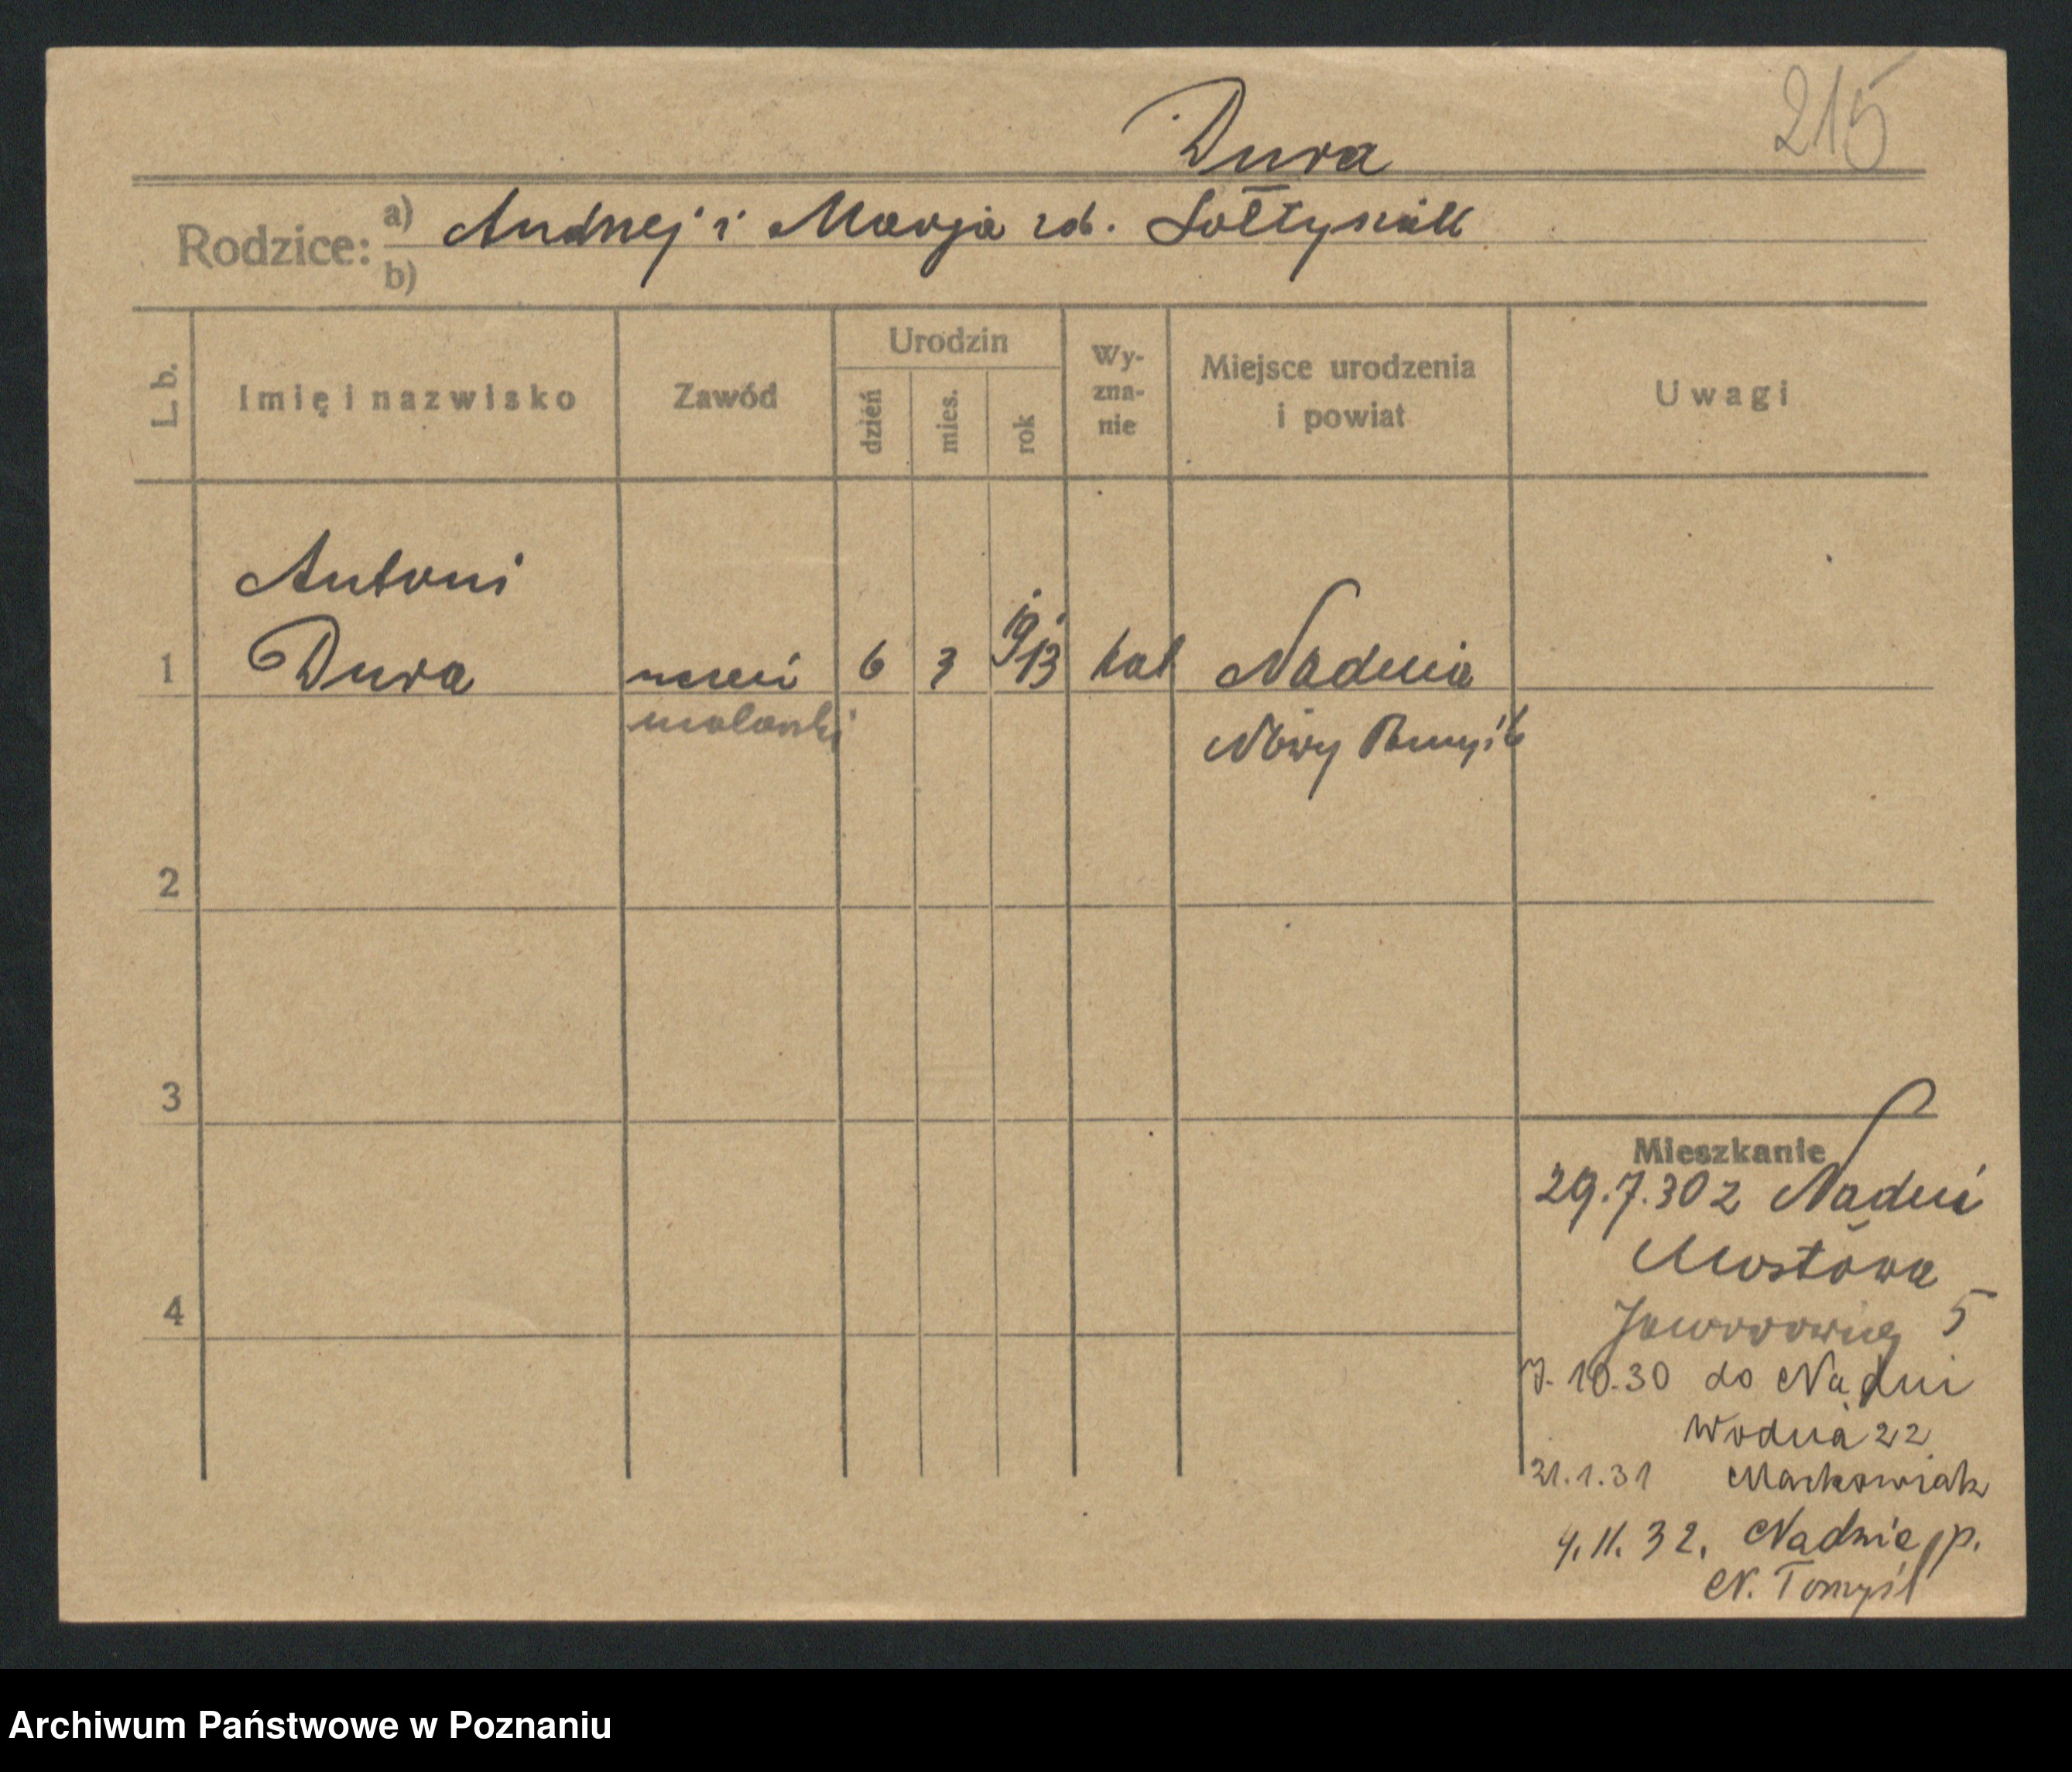 215
Dura
Rodzice: a) Andrzej i Marja rd. Sołtysiak
b)
L. b. Imię i nazwisko Zawód Urodzin dzień mies. rok Wy-zna-nie Miejsce urodzenia i powiat Uwagi
Antoni
1 Dura uczeń 6 3 1913 kat Nadnia
malarski Nowy Tomyśl
2
3
Mieszkanie
29.7.30 z Nadni
Mostowa
4 5
7.10.30 do Nadni
Wodna 22
21.1.31 Markowiak
4.11.32. Nadnie, p.
N. Tomyśl
Archiwum Państwowe w Poznaniu